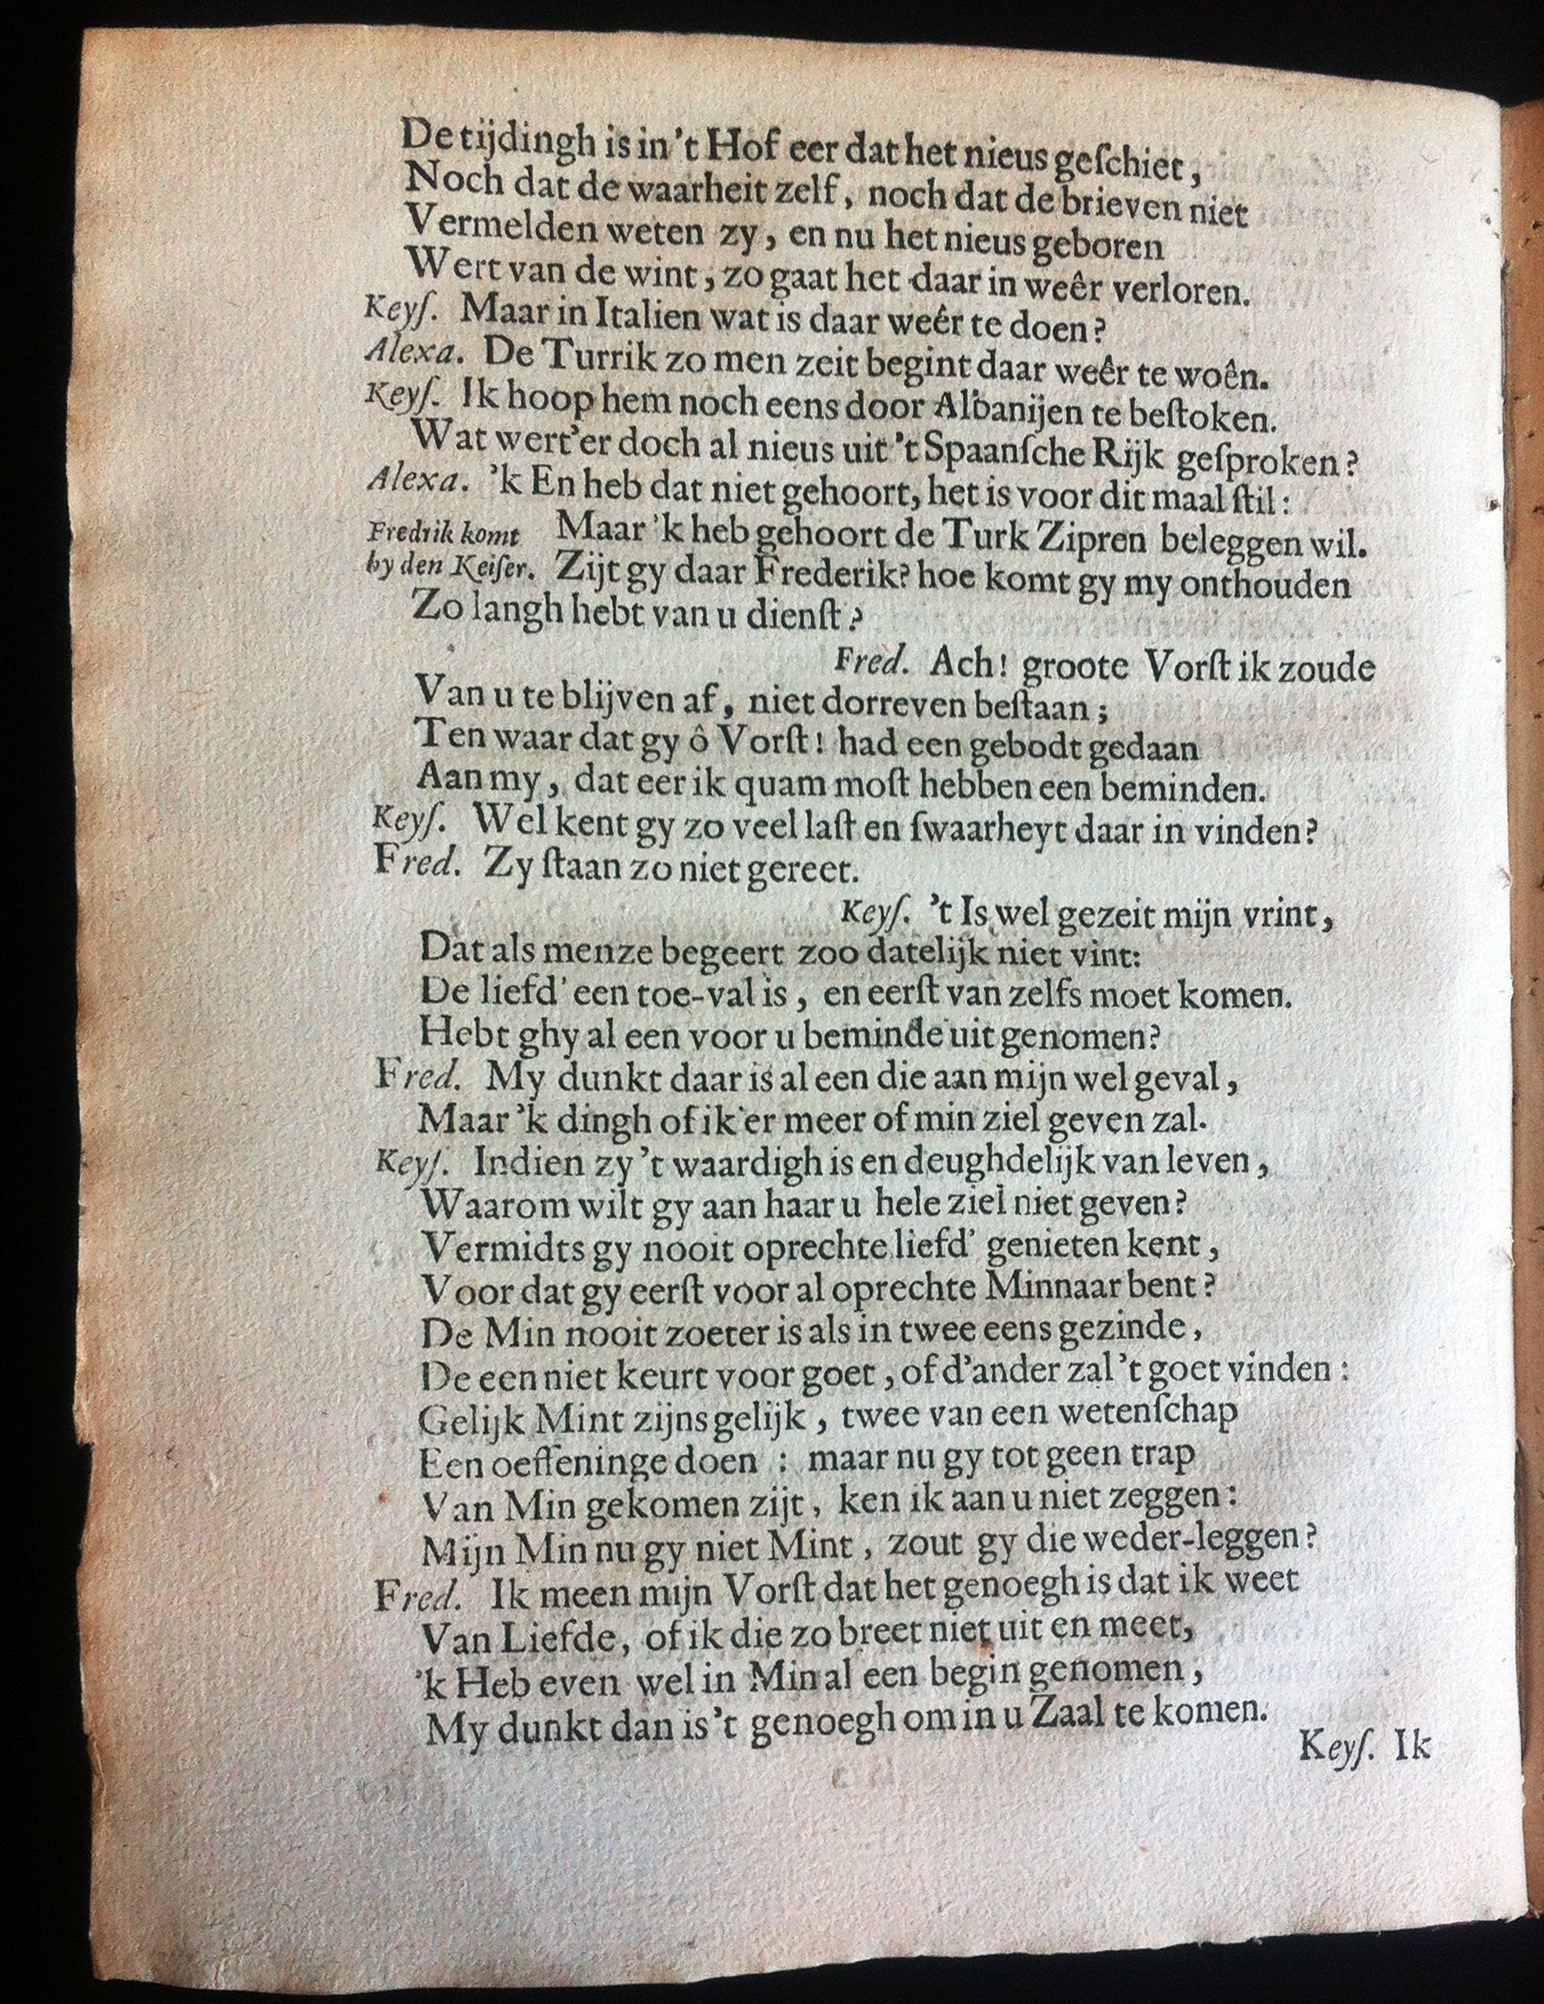 De tijdingh is in 't Hof eer dat het nieus geſchiet,
Noch dat de waarheit zelf, noch dat de brieven niet
Vermelden weten zy, en nu het nieus geboren
Wert van de wint, zo gaat het daar in weêr verloren.
Keyſ. Maar in Italien wat is daar weêr te doen?
Alexa. De Turrik zo men zeit begint daar weêr te woên.
Keyſ. Ik hoop hem noch eens door Albanijen te beſtoken.
Wat wert'er doch al nieus uit 't Spaanſche Rijk geſproken?
Alexa. 'k En heb dat niet gehoort, het is voor dit maal ſtil:
Fredrik komt Maar 'k heb gehoort de Turk Zipren beleggen wil.
by den Keiſer. Zijt gy daar Frederik? hoe komt gy my onthouden
Zo langh hebt van u dienſt?
Fred. Ach! groote Vorſt ik zoude
Van u te blijven af, niet dorreven beſtaan;
Ten waar dat gy ô Vorſt! had een gebodt gedaan
Aan my, dat eer ik quam moſt hebben een beminden.
Keyſ. Wel kent gy zo veel laſt en ſwaarheyt daar in vinden?
Fred. Zy ſtaan zo niet gereet.
Keyſ. 't Is wel gezeit mijn vrint,
Dat als menze begeert zoo datelijk niet vint:
De liefd' een toe-val is, en eerſt van zelfs moet komen.
Hebt ghy al een voor u beminde uit genomen?
Fred. My dunkt daar is al een die aan mijn wel geval,
Maar 'k dingh of ik'er meer of min ziel geven zal.
Keyſ. Indien zy 't waardigh is en deughdelijk van leven,
Waarom wilt gy aan haar u hele ziel niet geven?
Vermidts gy nooit oprechte liefd' genieten kent,
Voor dat gy eerſt voor al oprechte Minnaar bent?
De Min nooit zoeter is als in twee eens gezinde,
De een niet keurt voor goet, of d'ander zal 't goet vinden:
Gelijk Mint zijns gelijk, twee van een wetenſchap
Een oeffeninge doen : maar nu gy tot geen trap
Van Min gekomen zijt, ken ik aan u niet zeggen:
Mijn Min nu gy niet Mint, zout gy die weder-leggen?
Fred. Ik meen mijn Vorſt dat het genoegh is dat ik weet
Van Liefde, of ik die zo breet niet uit en meet,
'k Heb even wel in Min al een begin genomen,
My dunkt dan is 't genoegh om in u Zaal te komen.
Keyſ. Ik